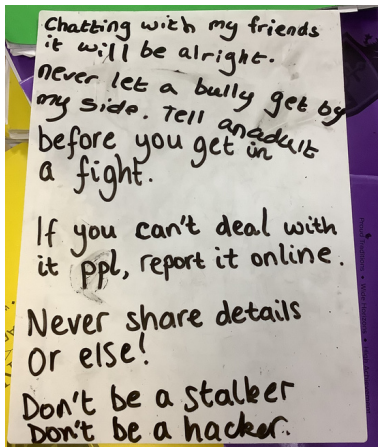 Chatting with my friends
it will be alright.
never let a bully get by
my side. Tell an adult
before you get in
a fight.
If you can't deal with
it ppl, report it online.
Never share details
Or else!
Don't be a stalker
Don't be a hacker.